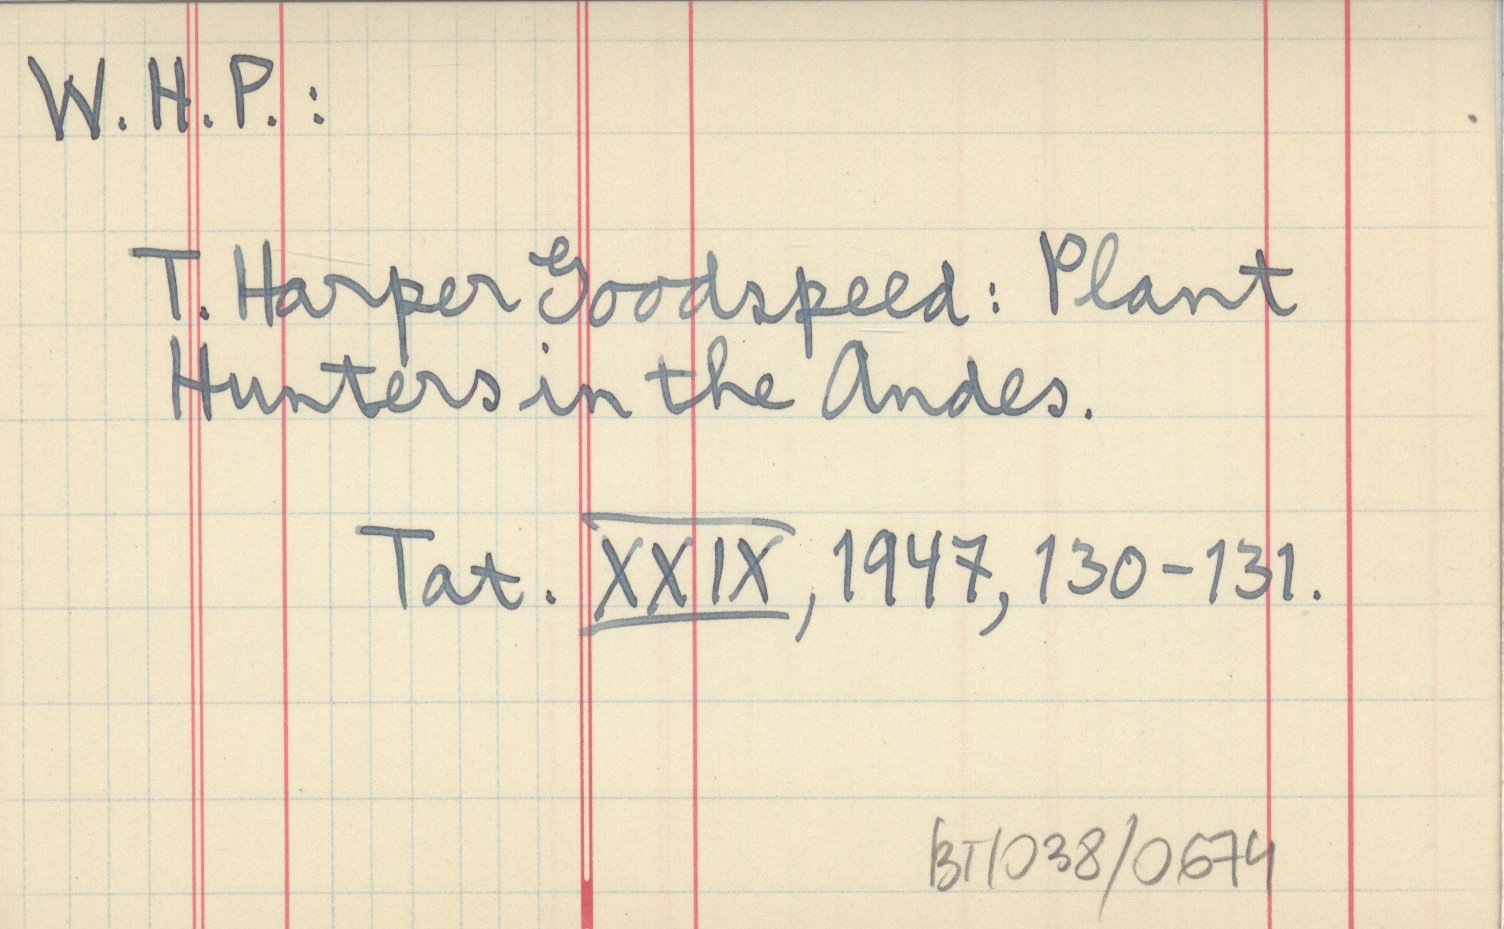 W. H. P. :
T. Harper Goodspeed: Plant
Hunters in the Andes.
Tat. XXIX, 1947, 130-131.
BT/038/0674